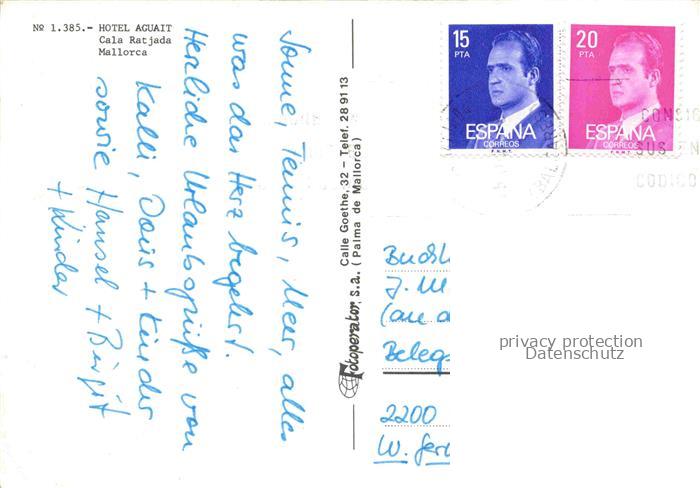 Nº 1.385.- HOTEL AGUAIT
Cala Ratjada
Mallorca
Sonne, Tennis, Meer, alles
was das Herz begehrt.
Herzliche Urlaubsgrüße von
Kalli, Doris + Kinder
sowie Hansel + Birgit
+ Kinder
Fotoperator, s.a.
Calle Goethe, 32 – Telef. 28 91 13
(Palma de Mallorca)
15
PTA
ESPAÑA
CORREOS
F.N.M.T.
20
PTA
ESPAÑA
CORREOS
F.N.M.T.
CONSIG
SUS EN
CODIGO
BALEARES
J. M
(an a
Beleg
2200
W. Ger
privacy protection
Datenschutz